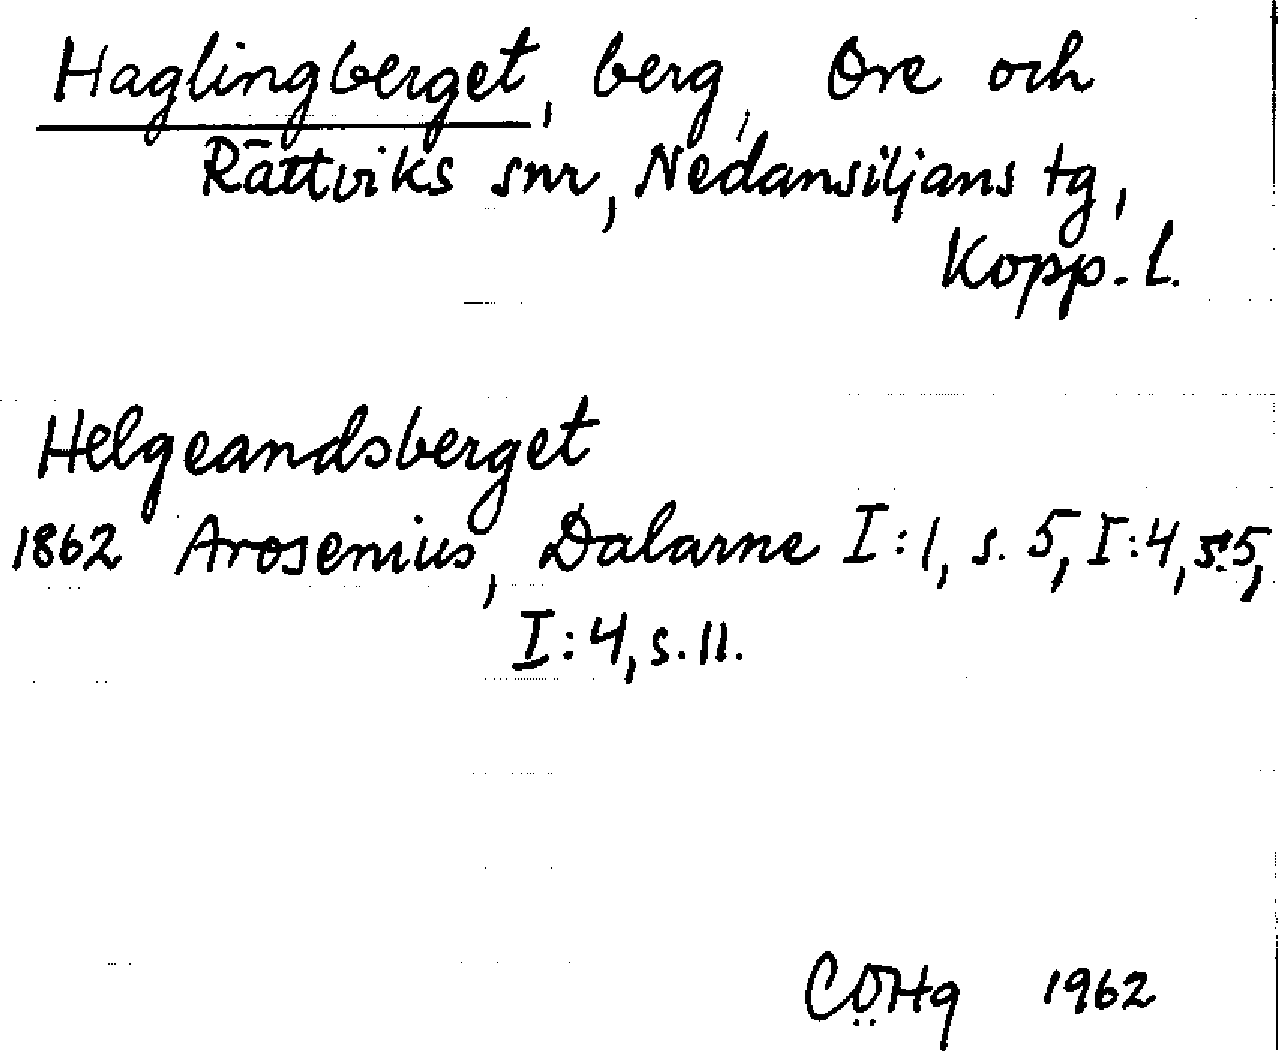 Haglingberget, berg, Ore och
Rättviks snr, Nedansiljans tg,
Kopp. l.
Helgeandsberget
1862 Arosenius, Dalarne I:1, s. 5, I:4, s. 5,
I:4, s. 11.
CÖHg 1962